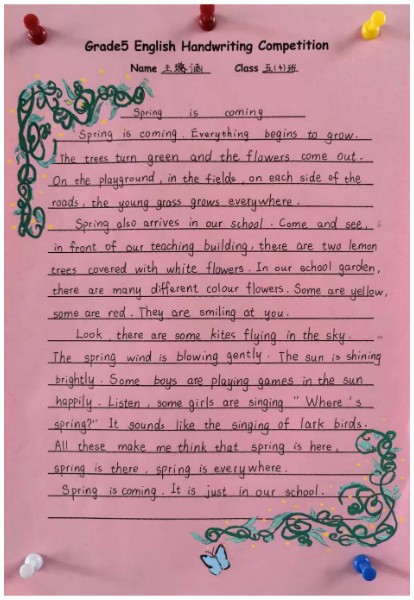 Grade5 English Handwriting Competition
Name 王璐涵 Class 五(4)班
Spring is coming
Spring is coming. Everything begins to grow.
The trees turn green and the flowers come out.
On the playground, in the fields, on each side of the
roads, the young grass grows everywhere.
Spring also arrives in our school. Come and see,
in front of our teaching building, there are two lemon
trees covered with white flowers. In our school garden,
there are many different colour flowers. Some are yellow,
some are red. They are smiling at you.
Look, there are some kites flying in the sky.
The spring wind is blowing gently. The sun is shining
brightly. Some boys are playing games in the sun
happily. Listen, some girls are singing "Where's
spring?" It sounds like the singing of lark birds.
All these make me think that spring is here,
spring is there, spring is everywhere.
Spring is coming. It is just in our school.